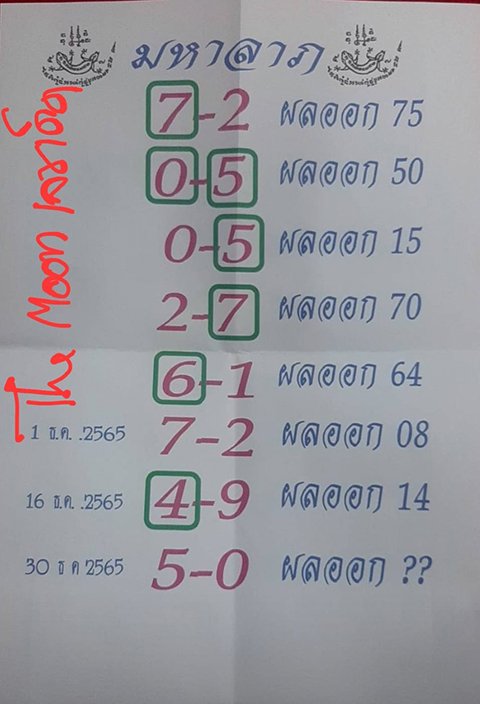 มหาลาภ
7-2 ผลออก 75
0-5 ผลออก 50
0-5 ผลออก 15
2-7 ผลออก 70
6-1 ผลออก 64
1 ธ.ค. .2565 7-2 ผลออก 08
16 ธ.ค. .2565 4-9 ผลออก 14
30 ธ ค 2565 5-0 ผลออก ??
The Moon